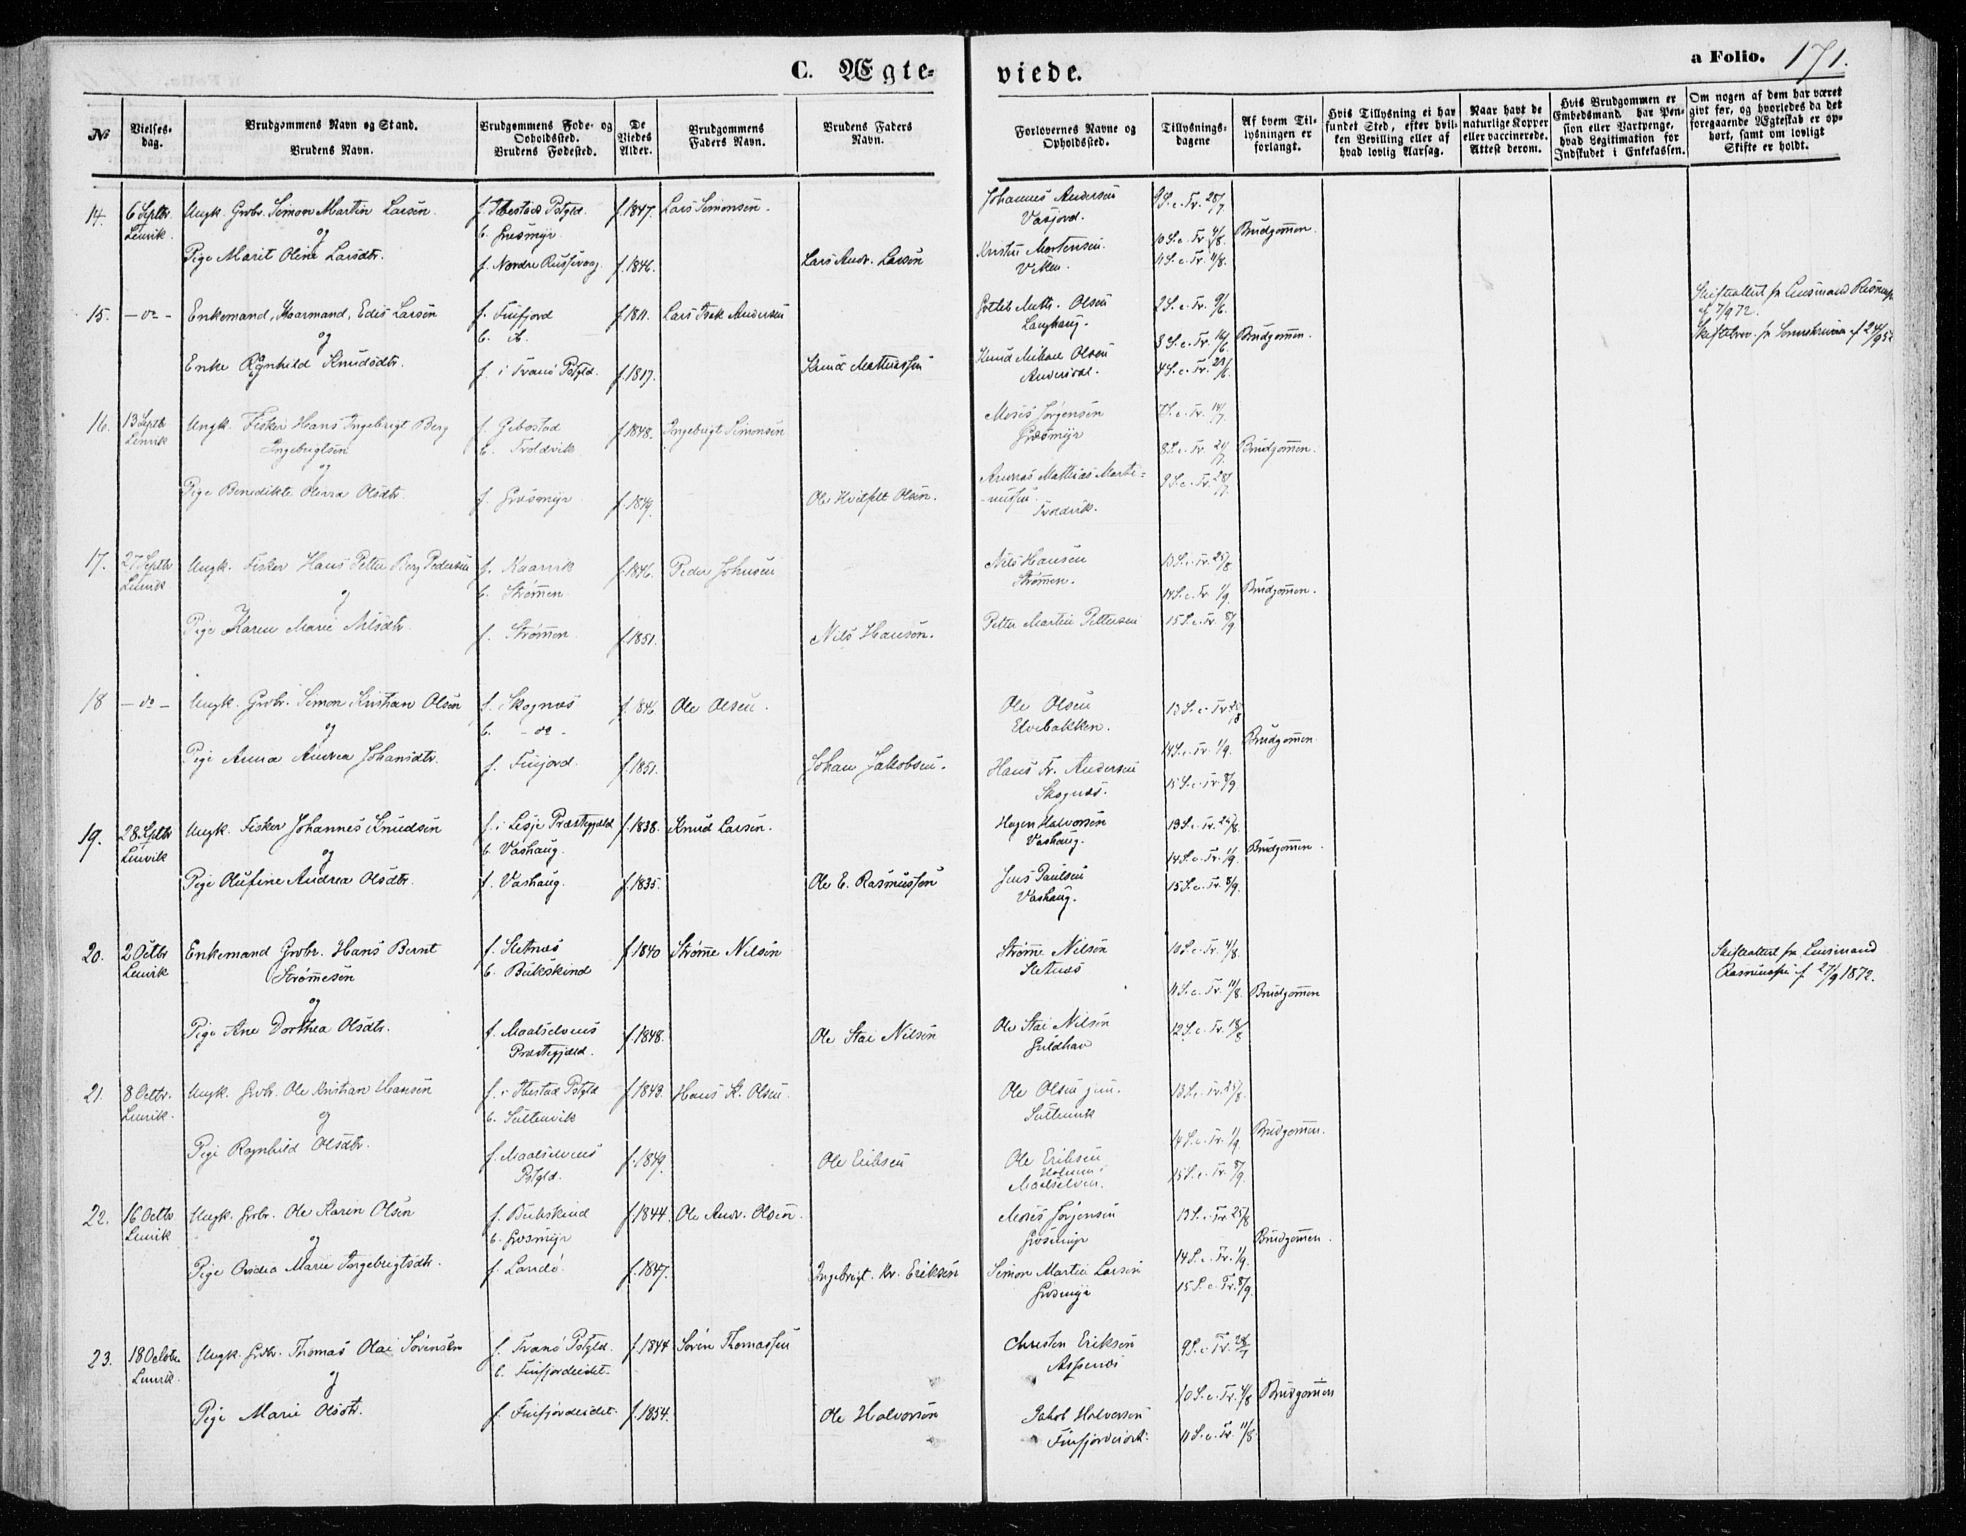 C. Ægteviede.
a Folio. 171.
No
Vielsesdag.
Brudgommens Navn og Stand.
Brudens Navn.
Brudgommens Føde- og
Opholdssted.
Brudens Fødested.
De
Viedes
Alder.
Brudgommens
Faders Navn.
Brudens Faders
Navn.
Forlovernes Navne og
Opholdssted.
Tillysnings-
dagene
Af hvem Til-
lysningen er
forlangt.
Hvis Tillysning ei har
fundet Sted, efter hvil-
ken Bevilling eller af
hvad lovlig Aarsag.
Naar havt de
naturlige Kopper
eller vaccinerede.
Attest derom.
Hvis Brudgommen er
Embedsmand har Pen-
sion eller Vartpenge,
hvad Legitimation for
Indskudet i Enkekassen.
Om nogen af dem har været
gift før, og hvorledes da det
foregaaende Ægteskab er op-
hørt, samt om lovligt
Skifte er holdt.
14. 6 Septbr. Ungk. Grbr. Simon Martin Larsen. f. Ibestad Pstgld. f. 1847. Lars Simonsen. Johannes Andersen 9 S. e. Tr. 28/7
Lenvik. og b. Græsmyr. Vasjord.
10 S. e. Tr. 4/8. Brudgommen.
Pige Marit Oline Larsdtr. f. Nordre Russevaag f. 1846. Lars Andr. Larsen Mortensen. 11 S. e. Tr. 11/8.
15. - do - Enkemand, Kaarmand, Edis Larsen f. Finfjord f. 1811. Lars Isak Andersen Olsen 2 S. e. Tr. 9/6.
og b. ib. Langhaug. 3 S. e. Tr. 16/6 Brudgommen.
Enke Ragnhild Knudsdtr. f. i Tranø Pstgld. f. 1817. Knud Mathiassen Knud Mikael Olsen 4 S. e. Tr. 23/6.
16. 13 Septb Ungk. Fisker Hans Ingebrigt Berg f. Gibostad f. 1848. Ingebrigt Simonsen Moses Jørgensen 7 S. e. Tr. 14/7
Lenvik Ingebrigtsen b. Troldvik Græsmyr 8 S. e. Tr. 21/7 Brudgommen.
og
Pige Benedikte Olsdtr. f. Græsmyr f. 1849. Ole Hvitfelt Olsen. Andreas Mathias Marti- 9 S. e. Tr. 28/7
nussen.
Troldvik.
17. 27 Septbr Ungk. Fisker Hans Petter Berg Pedersen f. Kaarvik f. 1846. Peder Johnsen Nils Hansen 13 S. e. Tr. 25/8
Lenvik og b. Strømmen Strømmen. 14 S. e. Tr. 1/9. Brudgommen.
Pige Karen Marie Nilsdtr. f. Strømmen f. 1851. Nils Hansen. Petter Martin Pettersen 15 S. e. Tr. 8/9
18 - do - Ungk. Grbr. Simon Kristian Olsen f. Skognæs f. 1846 Ole Olsen. Ole Olsen 13 S. e. Tr. 25/8
og b. - do - Elvebakken. 14 S. e. Tr. 1/9. Brudgommen
Pige Anna Andrea Johansdtr. f. Finfjord. f. 1851. Johan Jakobsen. Hans Fr. Andersen 15 S. e. Tr. 8/9
Skognæs.
19. 28 Septbr Ungk. Fisker Johannes Knudsen f. i Lesje Præstegjæld f. 1838. Knud Larsen. Hagen Halvorsen 13 S. e. Tr. 25/8.
Lenvik og b. Vashaug. Vashaug. 14 S. e. Tr. 1/9. Brudgommen.
Pige Olufine Andrea Olsdtr. f. Vashaug. f. 1835. Ole E. Rasmussen Jens Paulsen 15 S. e. Tr. 8/9.
Vashaug.
20. 2 Octbr Enkemand Grbr. Hans Bernt f. Sletnæs f. 1840 Strømme Nilsen Strømme Nilsen 10 S. e. Tr. 4/8. Skifteattest fra Lensmand
Lenvik Strømmesen b. Bukskind Sletnæs 11 S. e. Tr. 11/8. Brudgommen 27/9 1872.
og
Pige Ane Dorthea Olsdtr. f. Maalselvens f. 1848. Ole Stai Nilsen Ole Stai Nilsen 12 S. e. Tr. 18/8
Præstegjæld. Guldhav
21. 8 Octbr. Ungk. Grbr. Ole Kristian Hansen f. i Ibestad Pstgld f. 1843. Hans K. Olsen. Ole Olsen jun. 13 S. e. Tr. 25/8.
Lenvik. og b. Sultenvik Sultenvik 14 S. e. Tr. 1/9. Brudgommen.
Pige Ragnhild Olsdtr. f. Maalselvens f. 1849. Ole Eriksen Ole Eriksen 15 S. e. Tr. 8/9.
Pstgld. Maalselven.
22. 16 Octbr Ungk. Grbr. Ole Karin Olsen f. Bukskind f. 1844. Ole Andr. Olsen. Moses Jørgensen 13 S. e. Tr. 25/8
Lenvik og b. Græsmyr Græsmyr 14 S. e. Tr. 1/9. Brudgommen.
Pige Marie Ingebrigtsdtr. f. Landø. f. 1847. Ingebrigt Kr. Eriksen Simon Martin Larsen 15 S. e. Tr. 8/9.
Græsmyr
23. 18 Octobr Ungk. Grbr. Thomas Olai Sørensen f. Tranø Pstgld. f. 1844 Søren Thomassen Christen Eriksen 9 S. e. Tr. 28/7
Lenvik. og b. Finfjordeidet. 10 S. e. Tr. 4/8 Brudgommen
Pige Marie Olsdtr. f. Finfjordeidet. f. 1854. Ole Halvorsen Jakob Halvorsen 11 S. e. Tr. 11/8
Finfjordeidet.